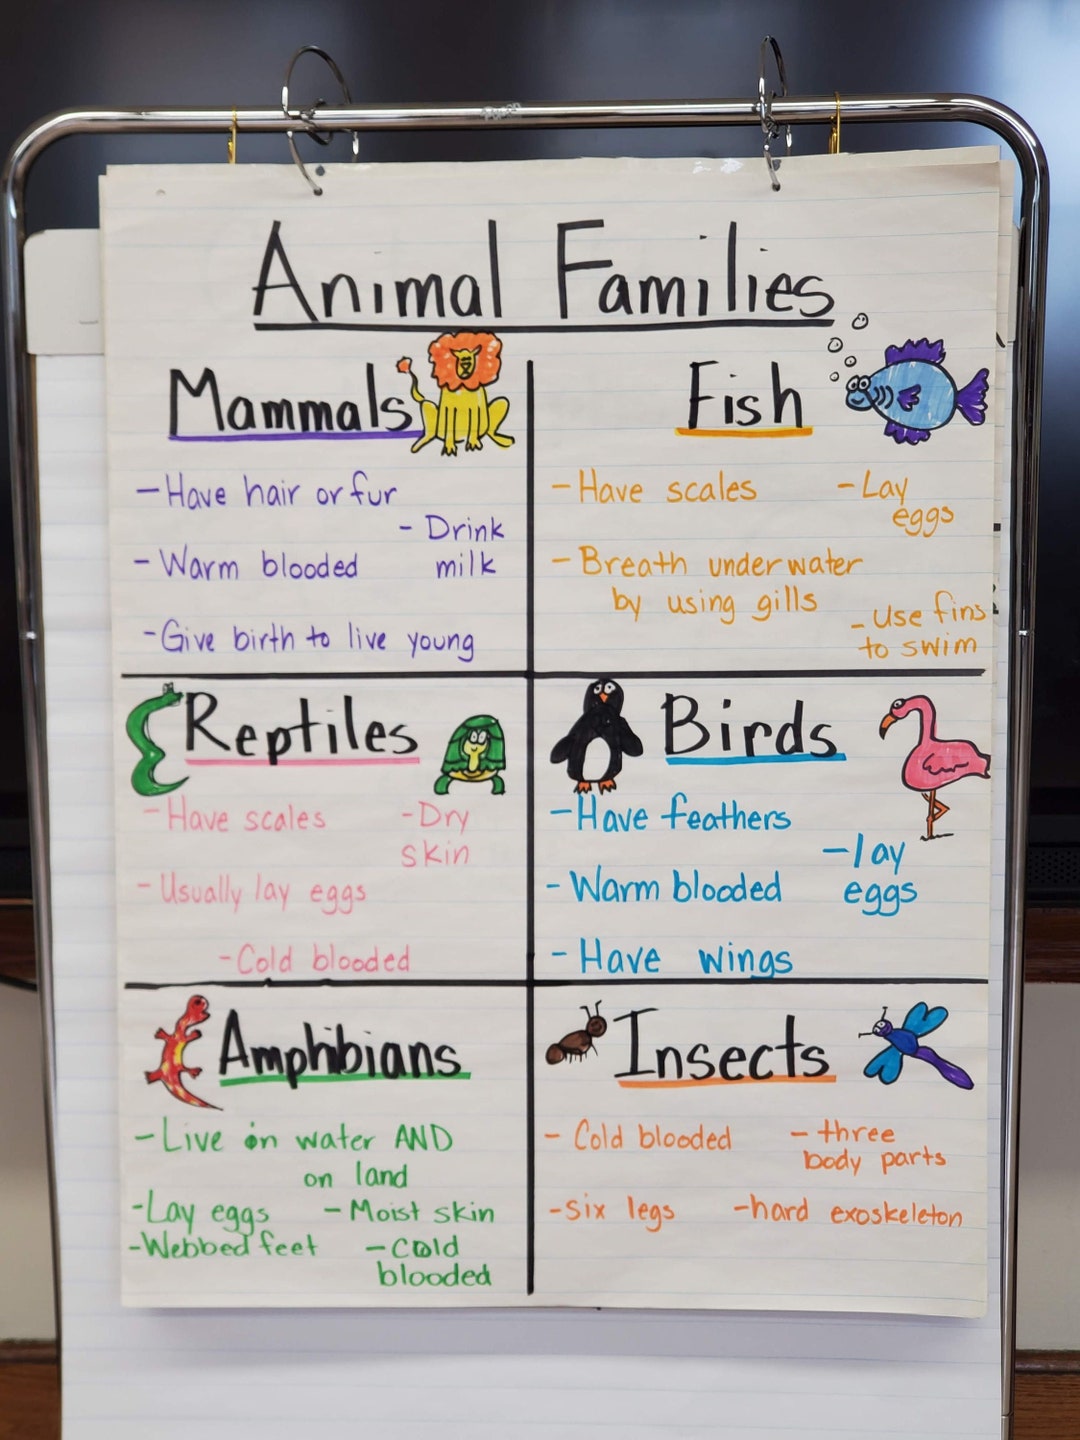 Animal Families
Mammals
- Have hair or fur
- Drink
milk
- Warm blooded
- Give birth to live young
Fish
- Have scales
- Lay
eggs
- Breath underwater
by using gills
- use fins
to swim
Reptiles
- Have scales
- Dry
skin
- Usually lay eggs
- Cold blooded
Birds
- Have feathers
- lay
eggs
- Warm blooded
- Have wings
Amphibians
- Live in water AND
on land
- Lay eggs
- Moist skin
- Webbed feet
- Cold
blooded
Insects
- Cold blooded
- three
body parts
- six legs
- hard exoskeleton